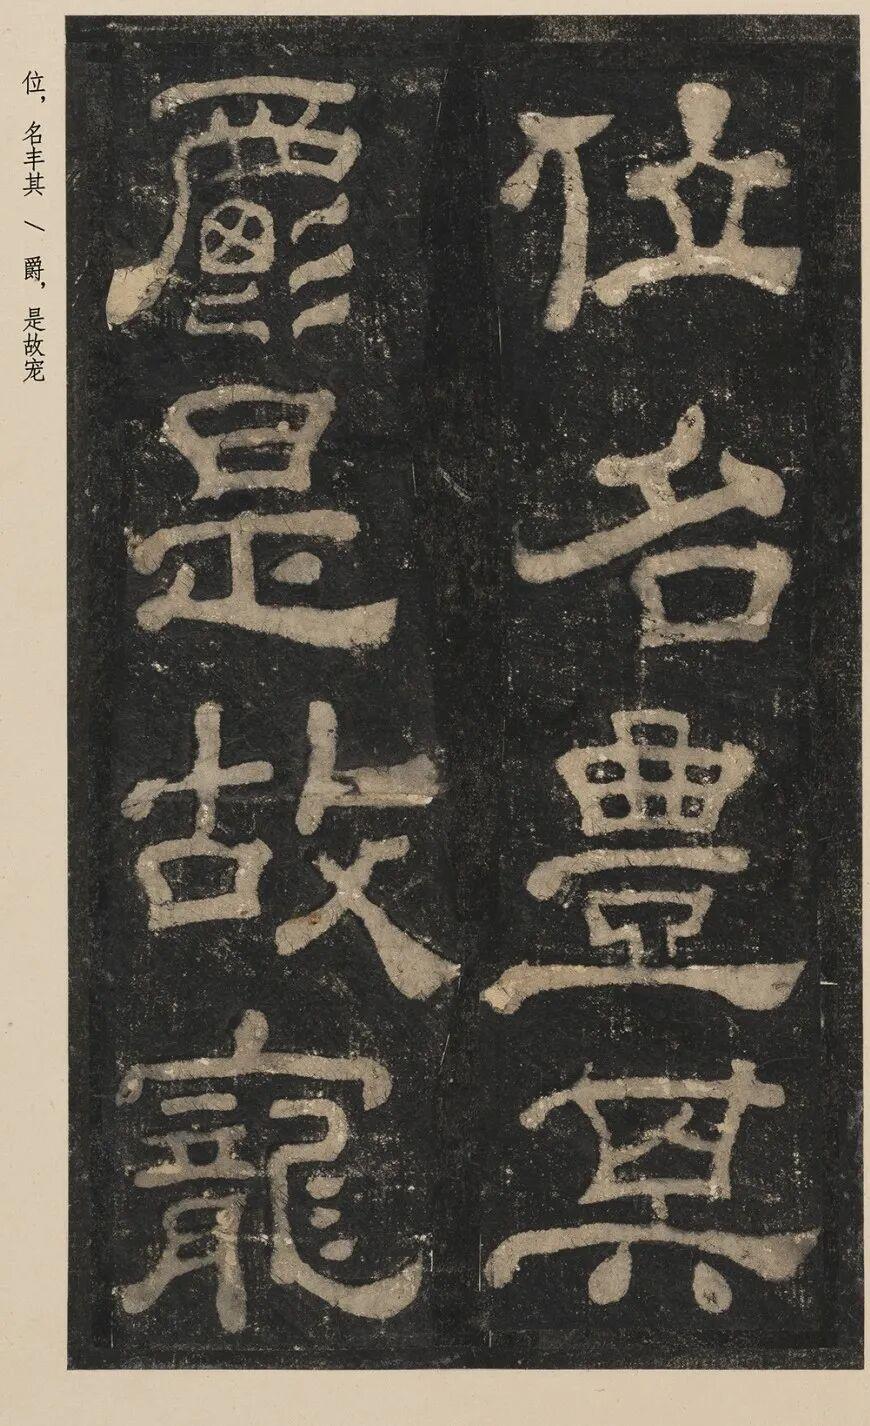 位名豊其
爵是故寵
位，名丰其 \ 爵，是故宠